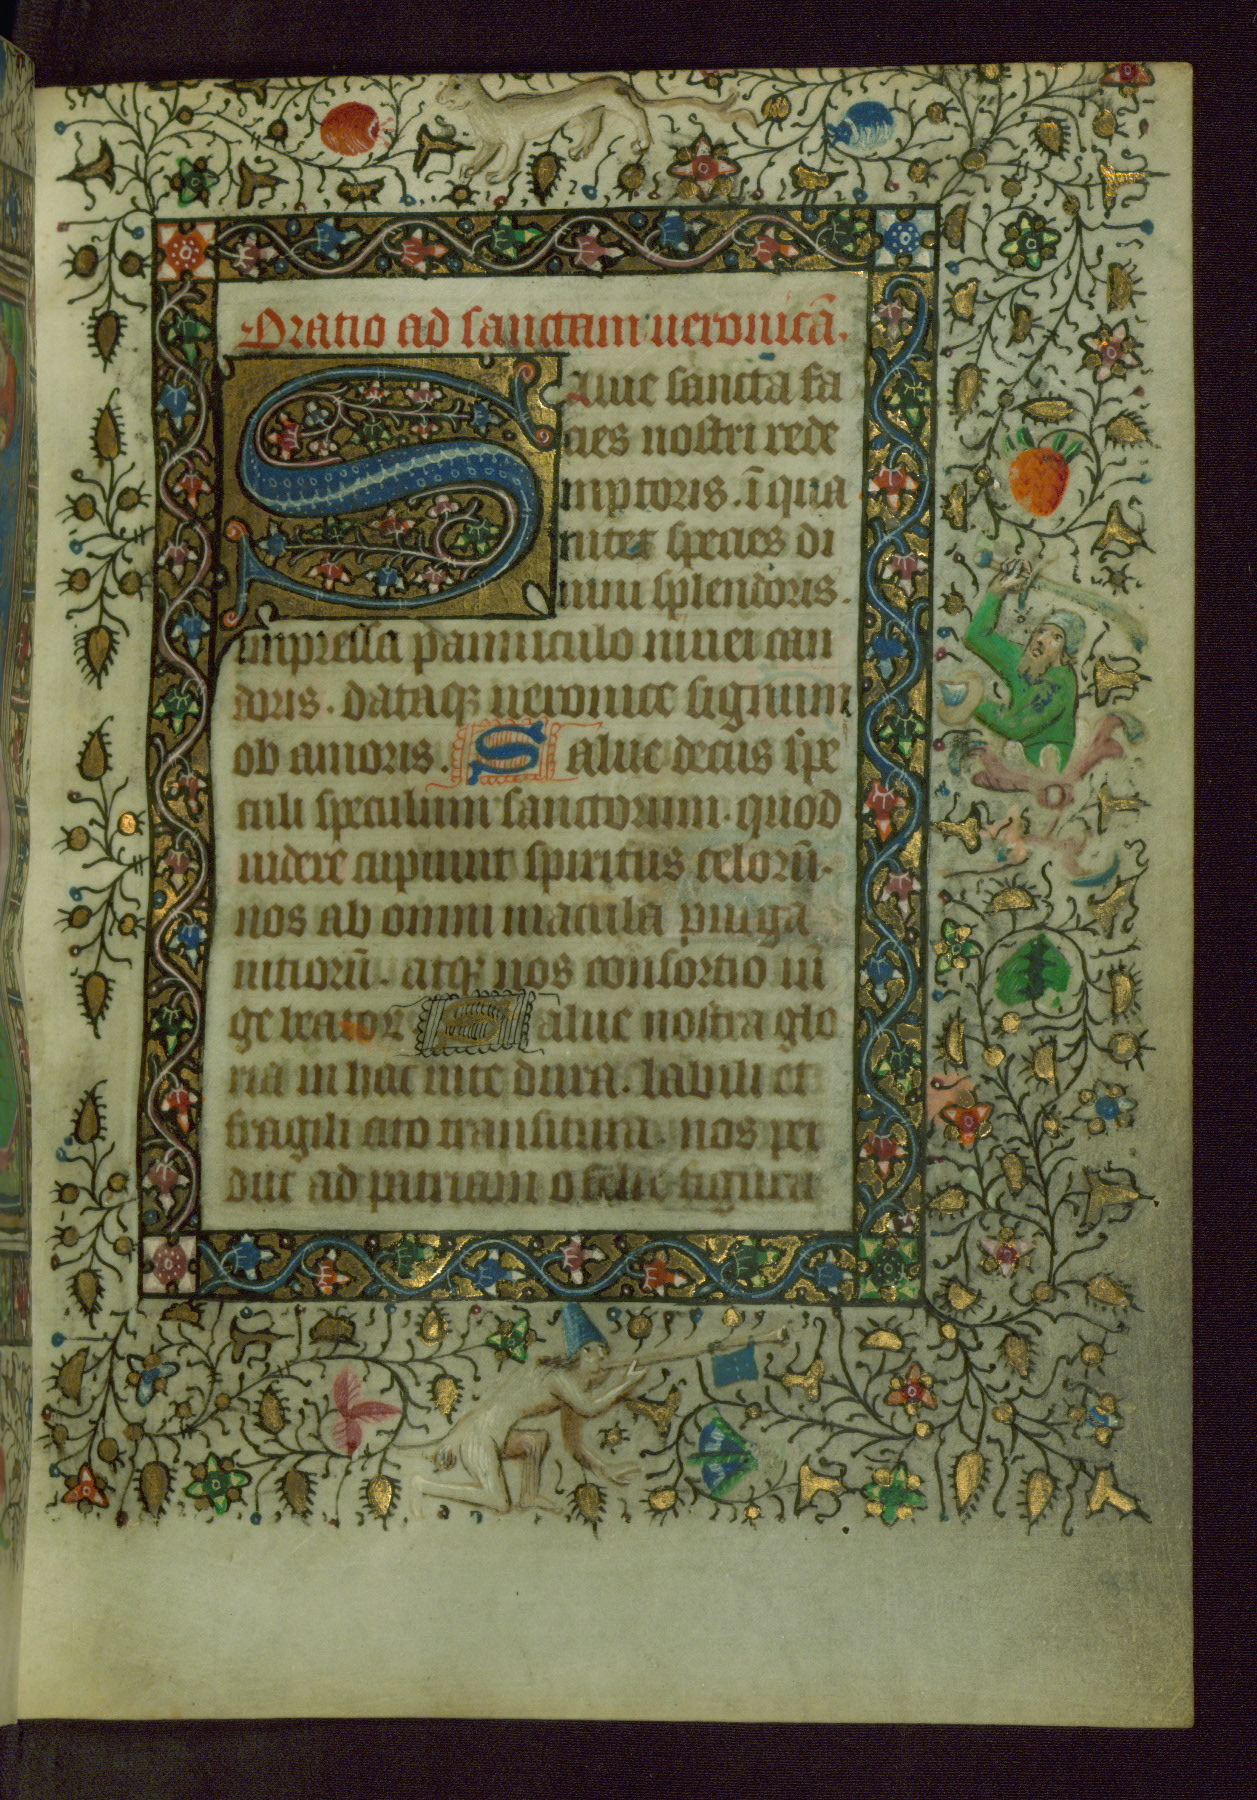 Oratio ad sanctam ueronicā.
Salue sancta fa
cies nostri rede
mptoris . ī qua
nitet species di
uini splendoris .
impressa panniculo niuei can
doris . dataqꝫ ueronice signum
ob amoris . Salue decus spe
culi speculum sanctorum . quod
uidere cupiunt spiritus celorū .
nos ab omni macula purga
uitiorū . atqꝫ nos consortio iū
ge beatorꝫ Salue nostra glo
ria in hac uite dura . labili et
fragili cito transitura . nos per
duc ad patriam o felix figura